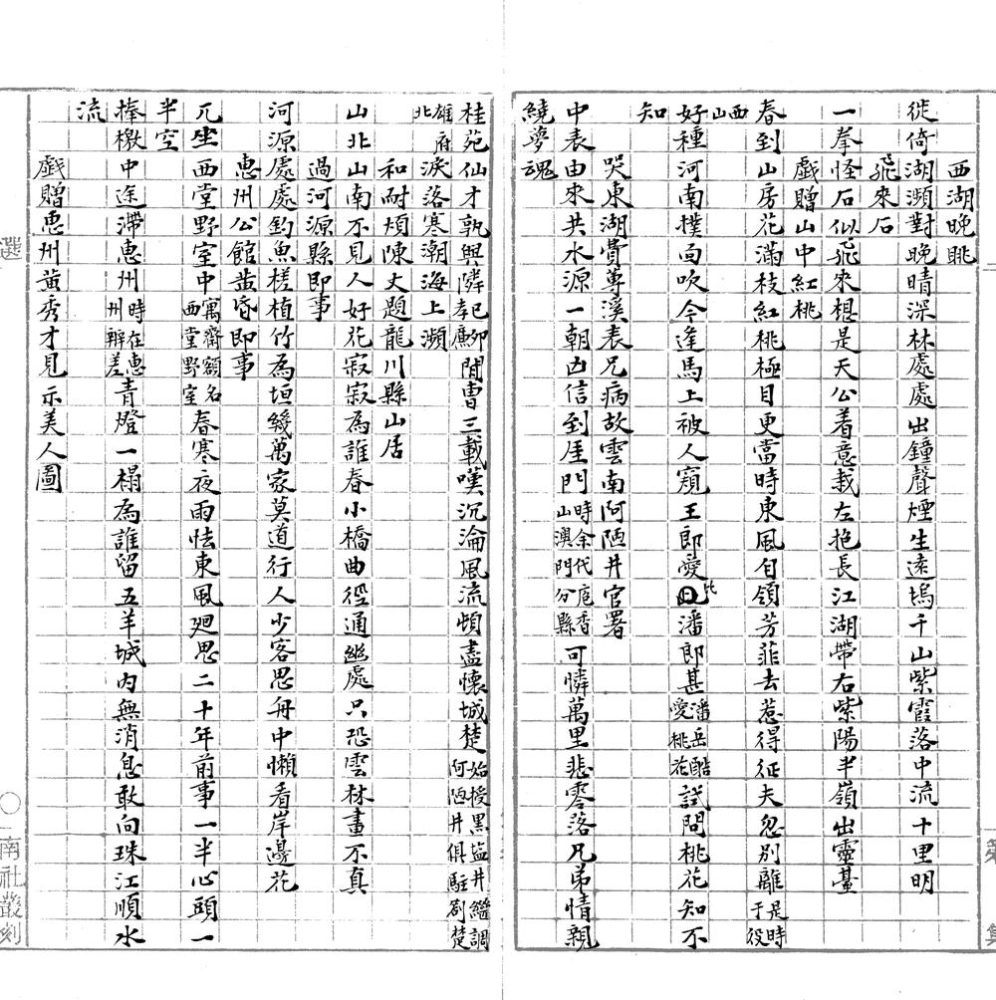 西湖晚眺
徙倚湖瀕對晚晴深林處處出鐘聲煙生遠塢千山紫霞落中流十里明
飛來石
一拳怪石似飛來想是天公着意栽左抱長江湖帶右紫陽半嶺出靈臺
戲贈山中紅桃
春到山房花滿枝紅桃極目更當時東風自領芳菲去惹得征夫忽別離是時于役
西山
好種河南撲面吹今逢馬上被人窺王郎愛此潘郎甚潘岳酷愛桃花試問桃花知不
知
哭東湖貴尊溪表兄病故雲南阿陋井官署
中表由來共水源一朝凶信到厓門時余代庖香山澳門分縣可憐萬里悲零落兄弟情親
繞夢魂
桂苑仙才孰與隣己卯孝廉閒曹三載嘆沉淪風流頓盡懷城楚始授黑盐井繼調阿陋井俱駐劄楚
雄府北淚落寒潮海上瀕
和耐煩陳丈題龍川縣山居
山北山南不見人好花寂寂為誰春小橋曲徑通幽處只恐雲林畫不真
過河源縣即事
河源處處釣魚槎植竹為垣幾萬家莫道行人少客思舟中懶看岸邊花
惠州公館黃昏即事
兀坐西堂野室中寓齋額名西堂野室春寒夜雨怯東風廻思二十年前事一半心頭一
半空
捧檄中途滯惠州時在惠州辦差青燈一榻為誰留五羊城內無消息敢向珠江順水
流
戲贈惠州黃秀才見示美人圖
選 〇 南社叢刻